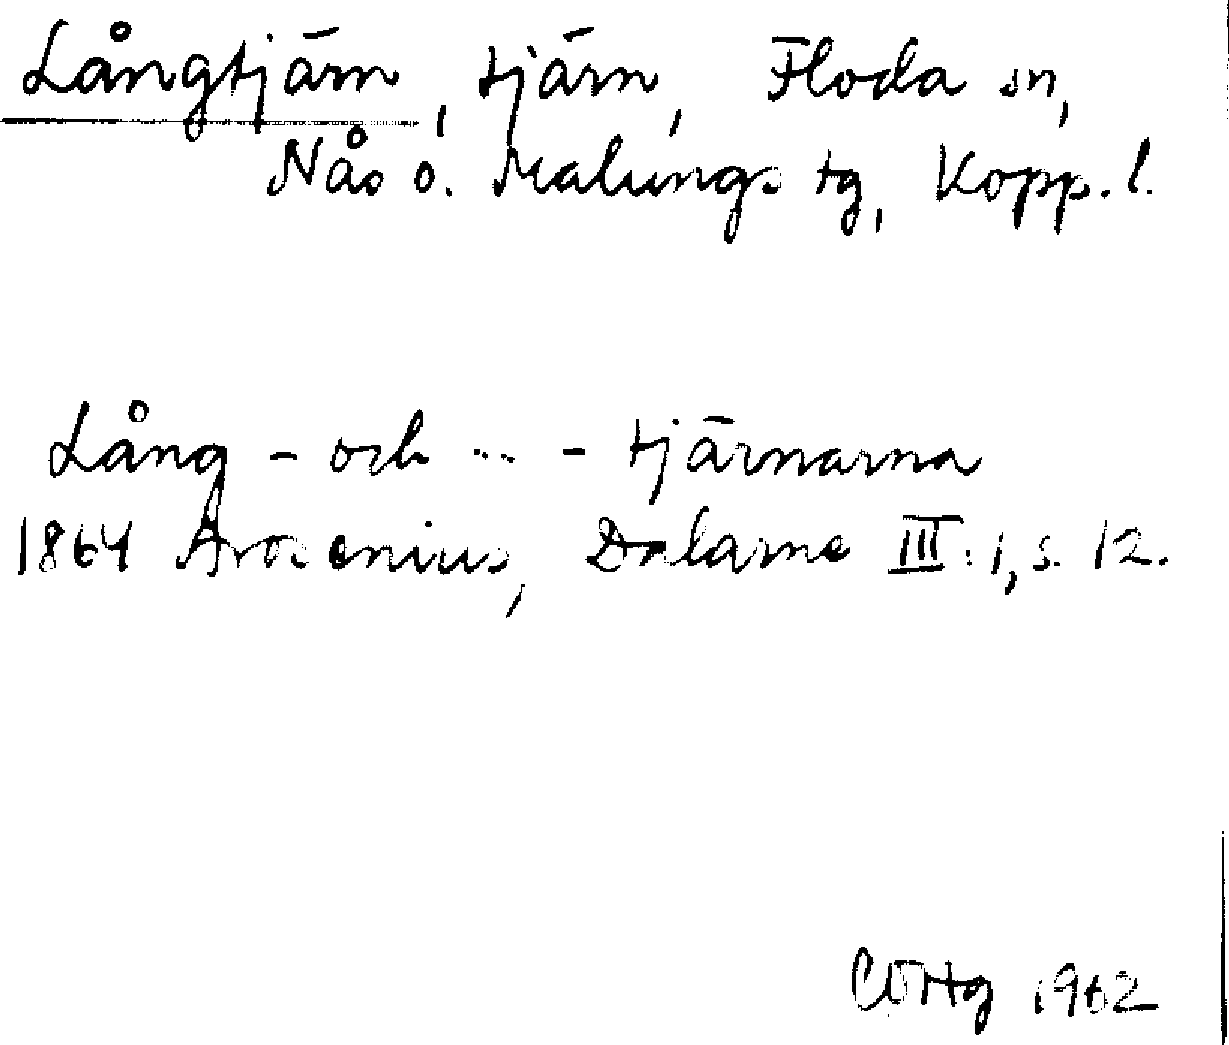 Långtjärn, tjärn, Floda sn,
Nås o. Malungs tg, Kopp. l.
Lång - och .. - tjärnarna
1864 Arosenius, Dalarne III:1, s. 12.
CÖHg 1962